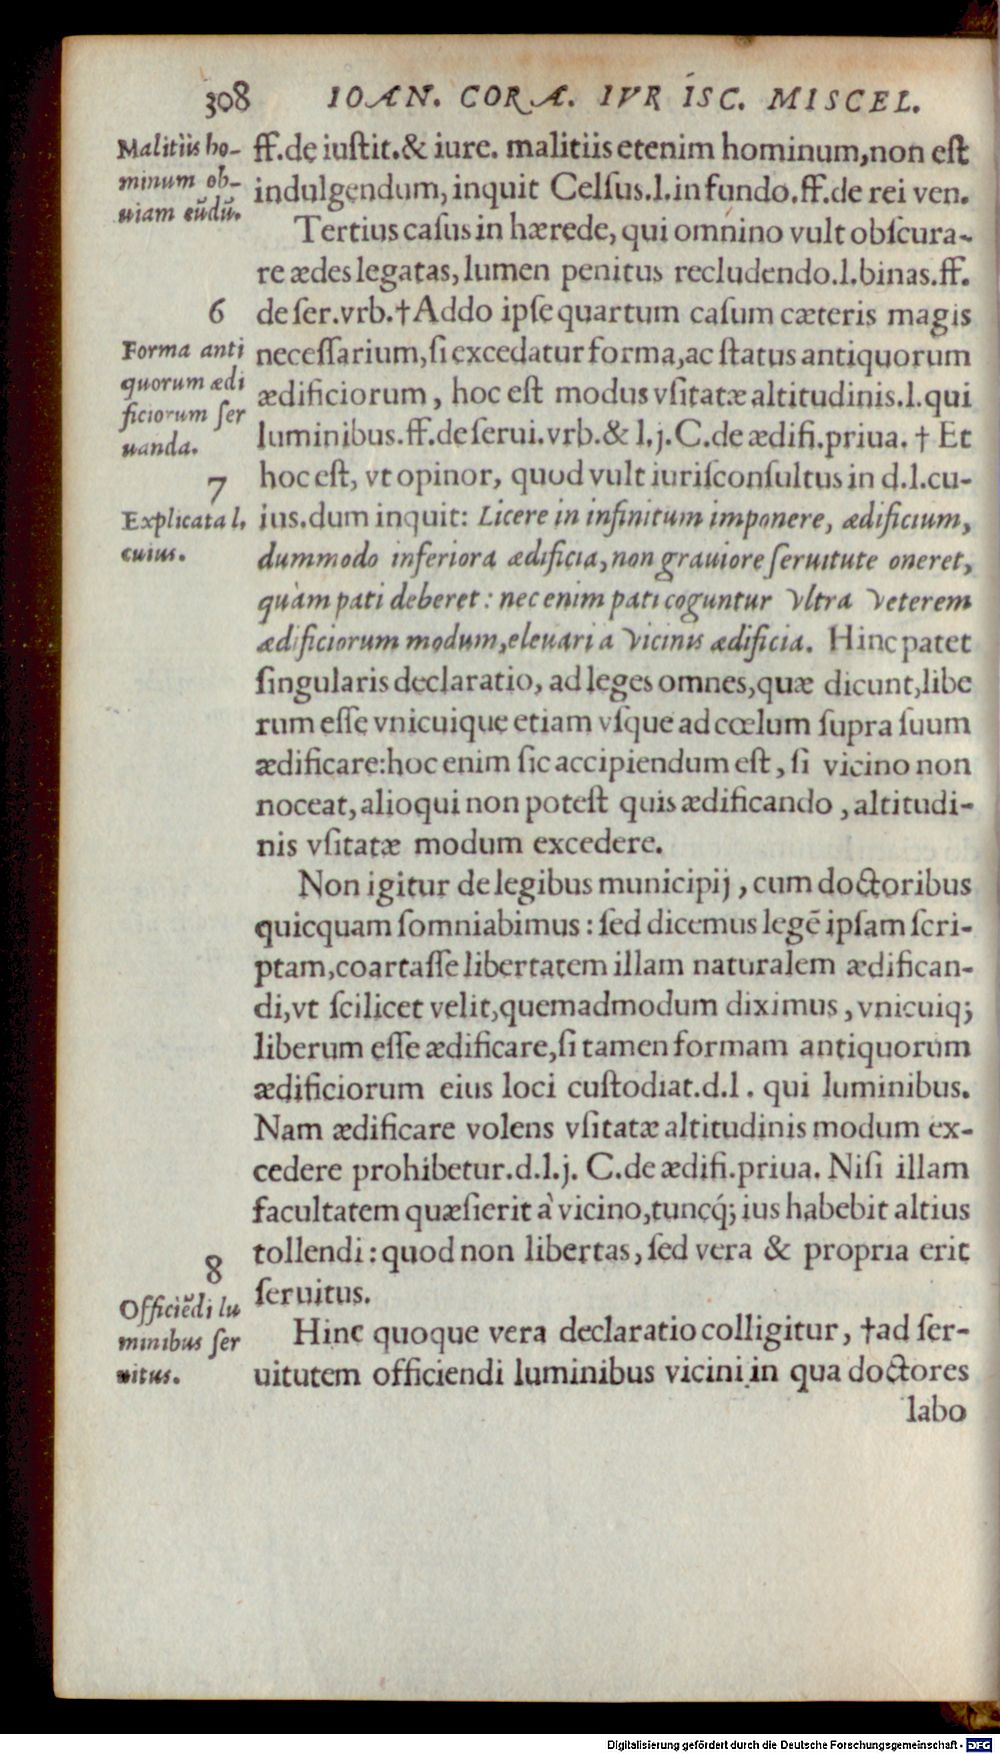 308 IOAN. CORA. IVR ISC. MISCEL.
Malitiis ho-
minum ob-
uiam eũdũ.
ff. de iustit. & iure. malitiis etenim hominum, non est
indulgendum, inquit Celsus. l. in fundo. ff. de rei ven.
Tertius casus in hærede, qui omnino vult obscura-
re ædes legatas, lumen penitus recludendo. l. binas. ff.
6
de ser. vrb. † Addo ipse quartum casum cæteris magis
Forma anti
quorum ædi
ficiorum ser
uanda.
necessarium, si excedatur forma, ac status antiquorum
ædificiorum, hoc est modus vsitatæ altitudinis. l. qui
luminibus. ff. de serui. vrb. & l. j. C. de ædifi. priua. † Et
7
hoc est, vt opinor, quod vult iurisconsultus in d. l. cu-
Explicata l.
cuius.
ius. dum inquit: Licere in infinitum imponere, ædificium,
dummodo inferiora ædificia, non grauiore seruitute oneret,
quàm pati deberet: nec enim pati coguntur vltra veterem
ædificiorum modum, eleuari a vicinis ædificia. Hinc patet
singularis declaratio, ad leges omnes, quæ dicunt, libe
rum esse vnicuique etiam vsque ad cœlum supra suum
ædificare: hoc enim sic accipiendum est, si vicino non
noceat, alioqui non potest quis ædificando, altitudi-
nis vsitatæ modum excedere.
Non igitur de legibus municipij, cum doctoribus
quicquam somniabimus: sed dicemus legẽ ipsam scri-
ptam, coartasse libertatem illam naturalem ædifican-
di, vt scilicet velit, quemadmodum diximus, vnicuiq;
liberum esse ædificare, si tamen formam antiquorum
ædificiorum eius loci custodiat. d. l. qui luminibus.
Nam ædificare volens vsitatæ altitudinis modum ex-
cedere prohibetur. d. l. j. C. de ædifi. priua. Nisi illam
facultatem quæsierit à vicino, tuncq́; ius habebit altius
tollendi: quod non libertas, sed vera & propria erit
8
seruitus.
Officiẽdi lu
minibus ser
uitus.
Hinc quoque vera declaratio colligitur, † ad ser-
uitutem officiendi luminibus vicini in qua doctores
labo
Digitalisierung gefördert durch die Deutsche Forschungsgemeinschaft - DFG